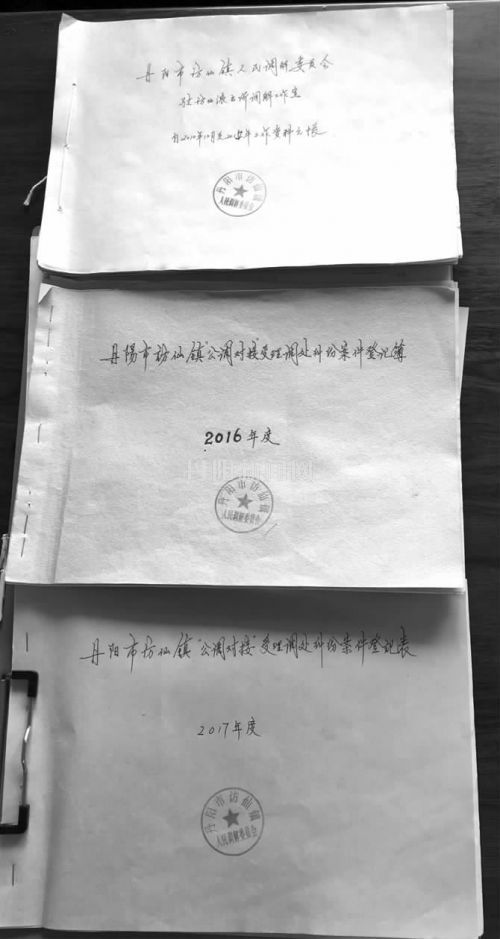 丹阳市访仙镇人民调解委员会
驻访仙派出所调解工作室
自2010年10月至2015年工作资料台帐
丹阳市访仙镇
人民调解委员会
丹陽市访仙镇"公调对接"受理调处纠纷案件登记簿
2016年度
丹阳市访仙镇
人民调解委员会
丹阳市访仙镇"公调对接"受理调处纠纷案件登记表
2017年度
丹阳市访仙镇
人民调解委员会